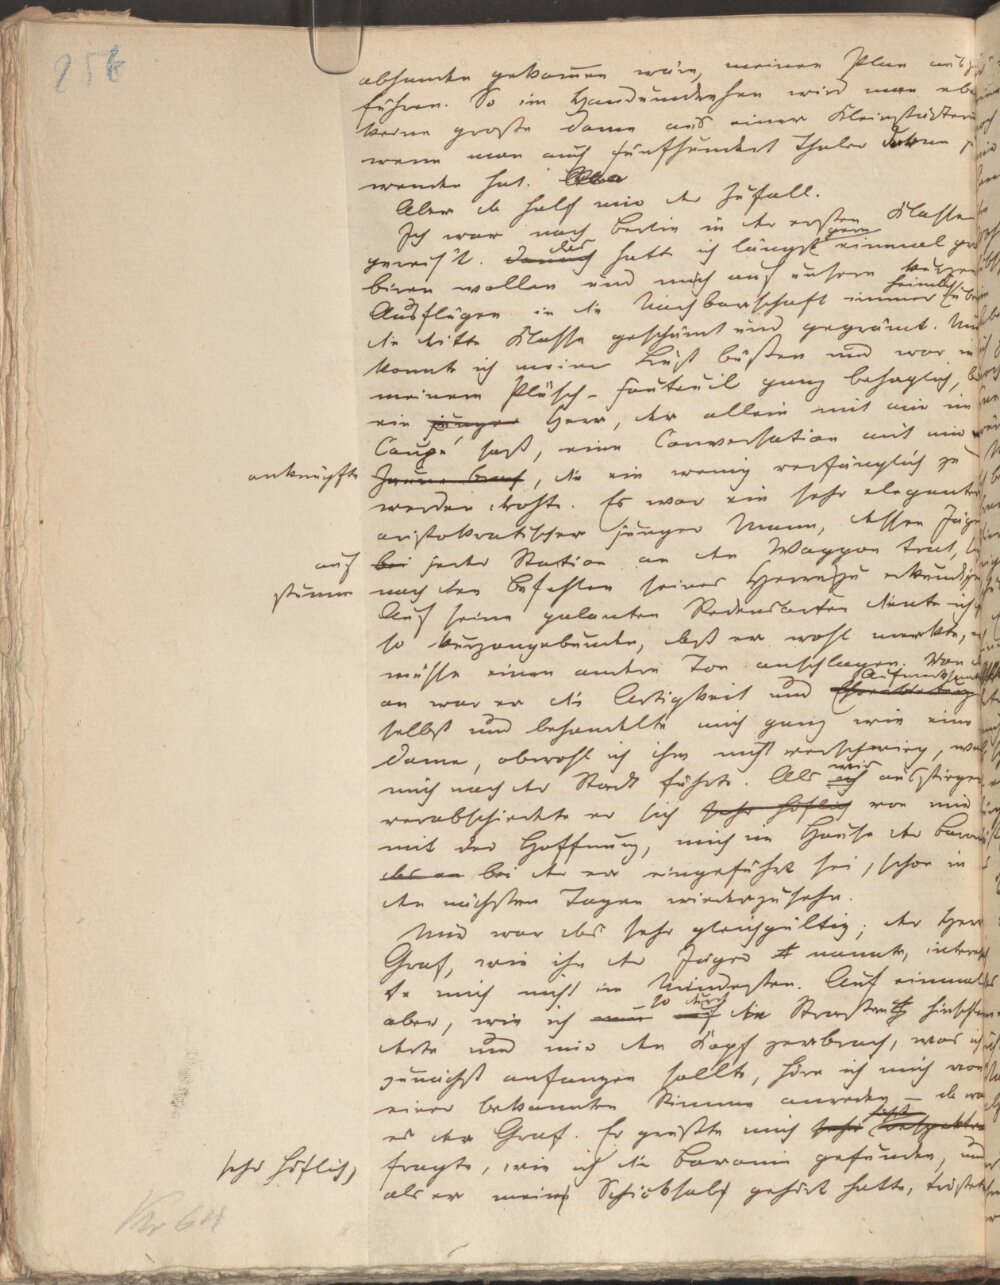 256
abhanden gekommen wäre, meinen Plan auszu
führen. So im Handumdrehen wird man eben
keine große Dame aus einer Kleinstädterin
wenn man auch fünfhundert Thaler daran
wenden hat. Aber
Aber da half mir der Zufall.
Ich war nach Berlin in der ersten Klasse
gereis't. Danach das hatt ich längst gern einmal pro
biren wollen und mich auf unsern kurzen
Ausflügen in die Nachbarschaft immer heimlich über
die dritte Klasse geschämt und gegrämt. Nun
konnt ich meine Lust büßen und war in
meinem Plüsch-Fauteuil ganz behaglich, bis
ein junger Herr, der allein mit mir im
Coupé saß, eine Conversation mit mir
anknüpfte, die ein wenig verfänglich zu
werden drohte. Es war ein sehr eleganter
aristokratischer junger Mann, dessen Jäger
auf bei jeder Station an den Waggon trat,
stumm nach den Befehlen seines Herrn zu erkundigen
Auf seine galanten Redensarten diente ich
so kurzangebunden, daß er wohl merkte, er
müsse einen andern Ton anschlagen. Von da
an war er die Artigkeit und Aufmerksamkeit
selbst und behandelte mich ganz wie eine
Dame, obwohl ich ihm nicht verschwieg, was
mich nach der Stadt führte. Als wir ich ausstiegen
verabschiedete er sich sehr höflich von mir
mit der Hoffnung, mich im Hause der Baronin
bei der er eingeführt sei, schon in
den nächsten Tagen wiederzusehn.
Mir war das sehr gleichgültig; der Herr
Graf, wie ihn der Jäger nannte, interessir
te mich nicht im Mindesten. Auf einmal
aber, wie ich nur so durch auf die Straßen hinschlen
derte und mir den Kopf zerbrach, was ich
zunächst anfangen sollte, höre ich mich von
einer bekannten Stimme anreden – da war
es der Graf. Er grüßte mich sehr respektvoll
sehr höflich, fragte, wie ich die Baronin gefunden, und
als er meine Schicksale gehört hatte, tröstete
No 64